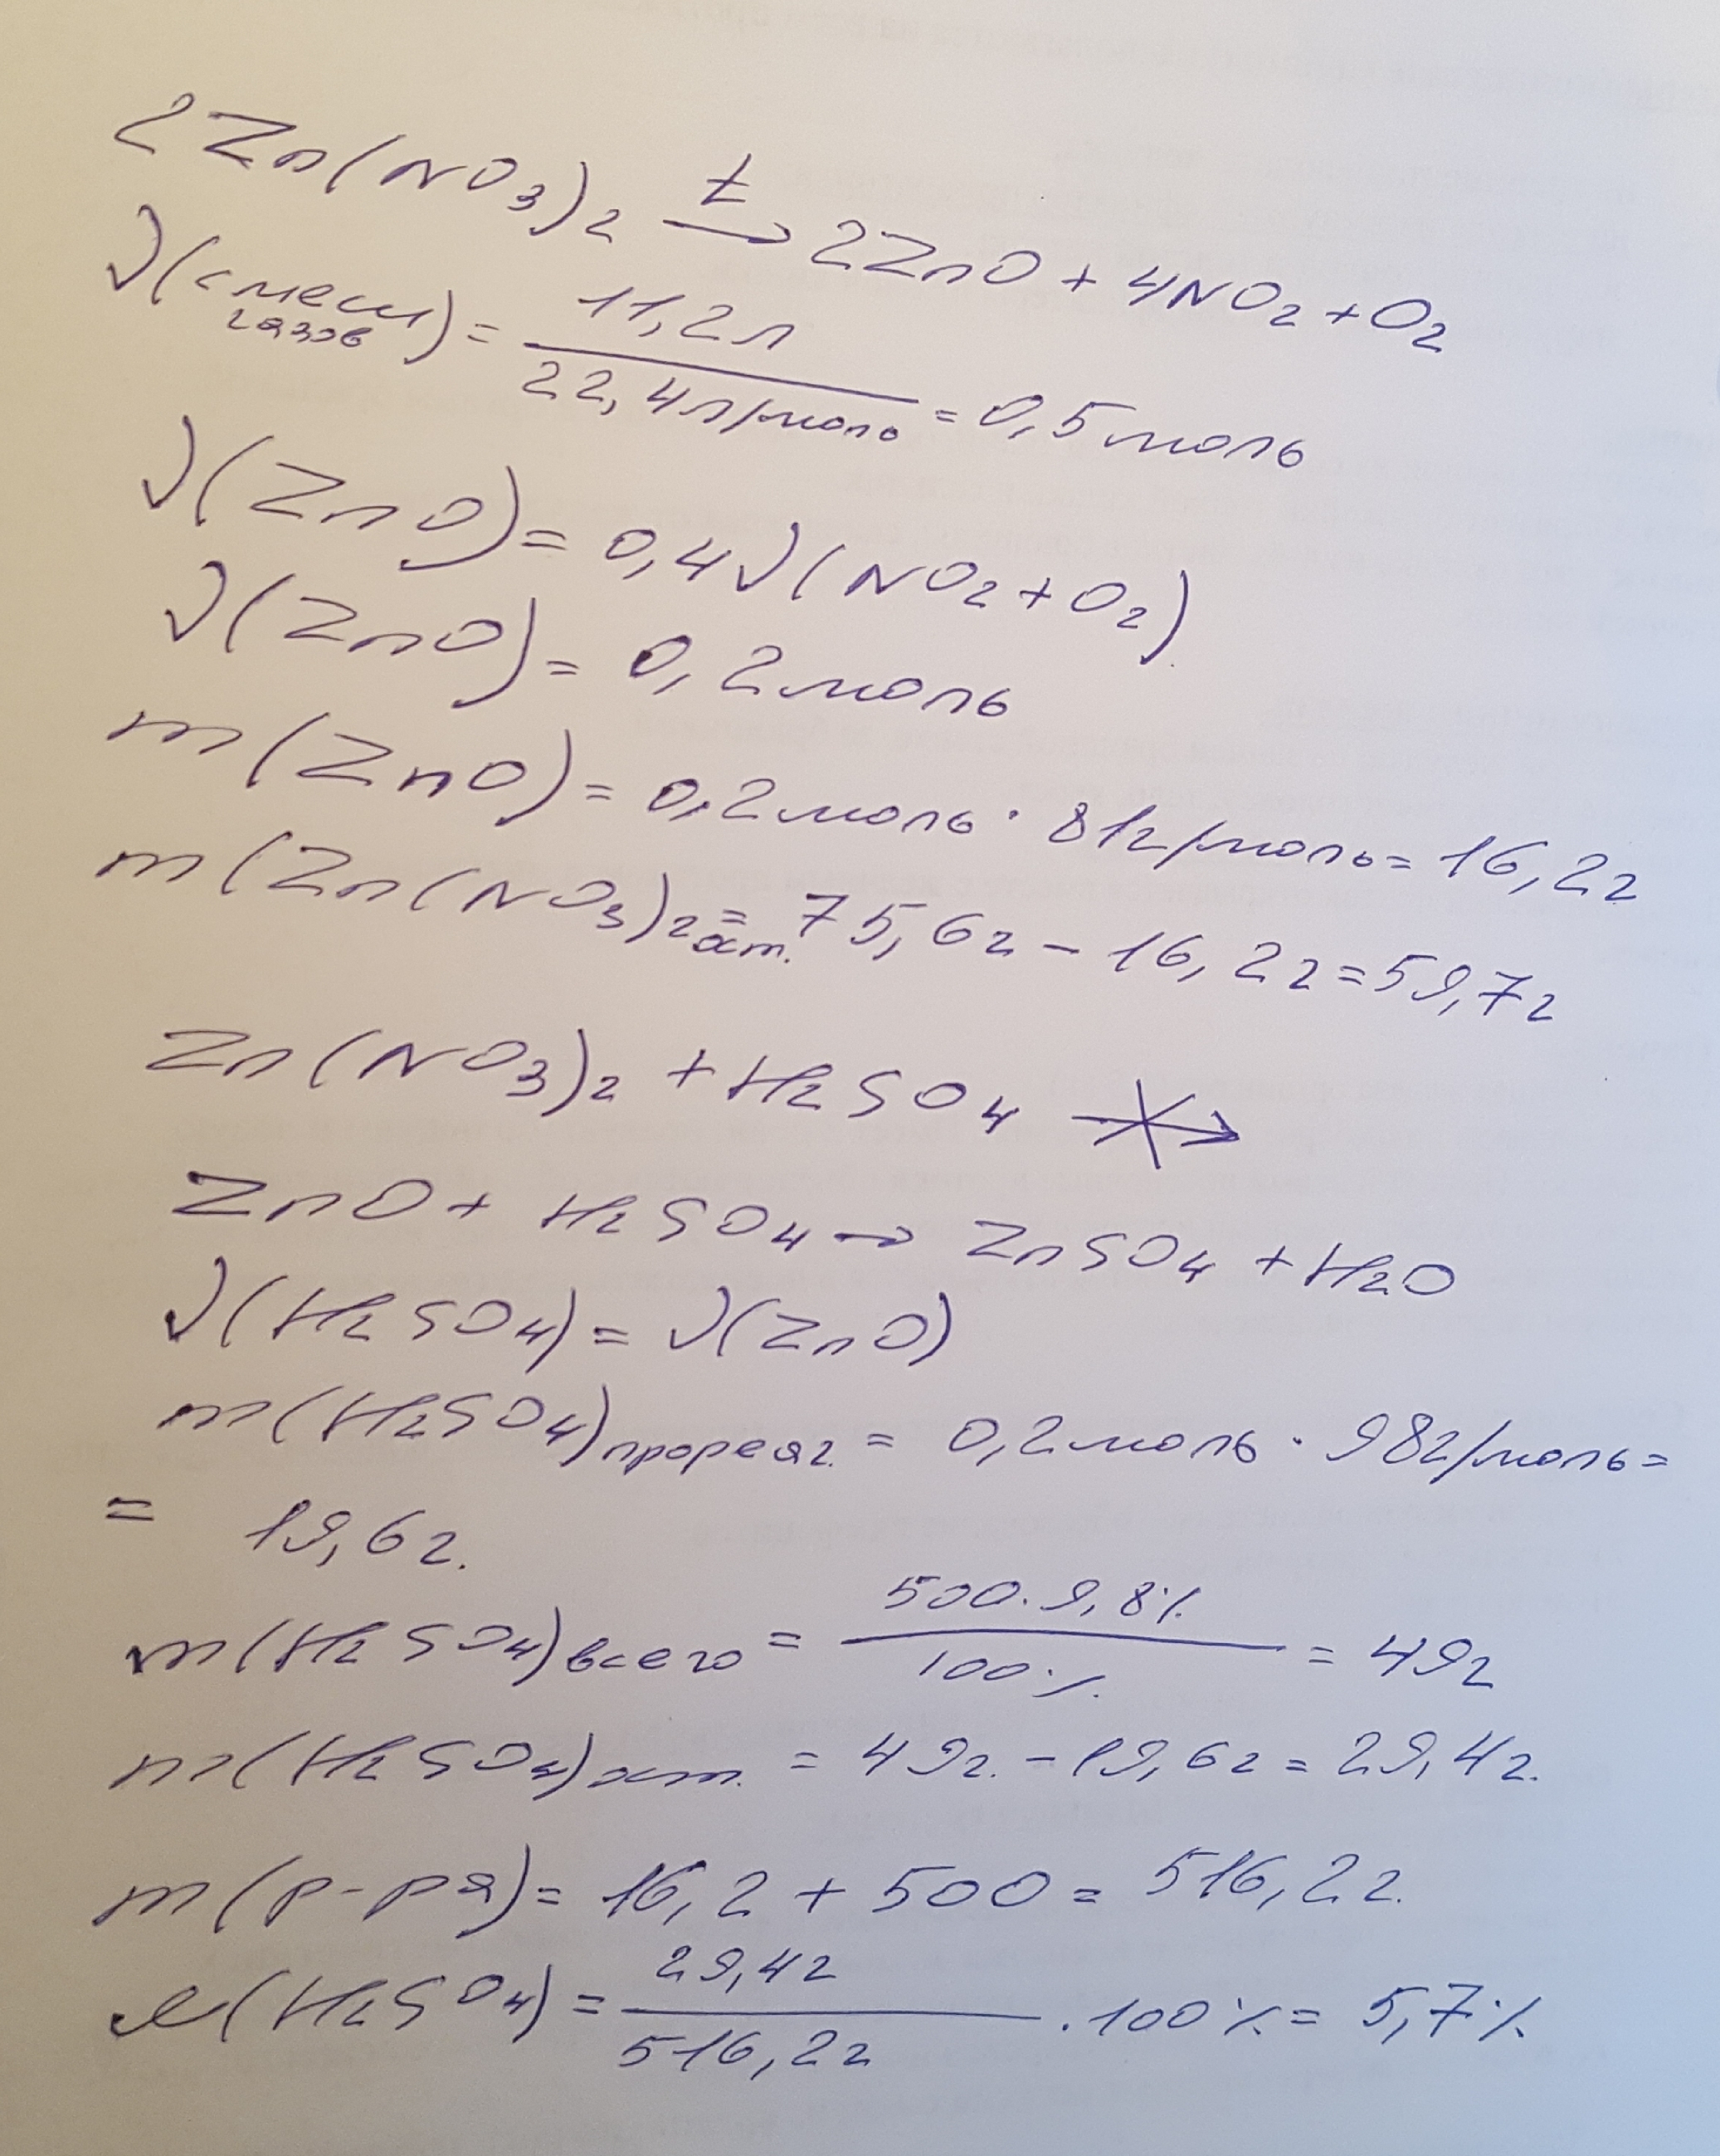 2Zn(NO₃)₂ →ᵗ 2ZnO + 4NO₂ + O₂
ν(смеси газов) = 11,2л / 22,4л/моль = 0,5моль
ν(ZnO) = 0,4ν(NO₂+O₂)
ν(ZnO) = 0,2моль
m(ZnO) = 0,2моль · 81г/моль = 16,2г
m(Zn(NO₃)₂ ост. = 75,6г – 16,2г = 59,7г
Zn(NO₃)₂ + H₂SO₄ ↛
ZnO + H₂SO₄ → ZnSO₄ + H₂O
ν(H₂SO₄) = ν(ZnO)
m(H₂SO₄)прореаг. = 0,2моль · 98г/моль =
= 19,6г.
m(H₂SO₄)всего = 500·9,8% / 100% = 49г
m(H₂SO₄)ост. = 49г. – 19,6г = 29,4г.
m(р-ра) = 16,2 + 500 = 516,2г.
ω(H₂SO₄) = 29,4г / 516,2г · 100% = 5,7%